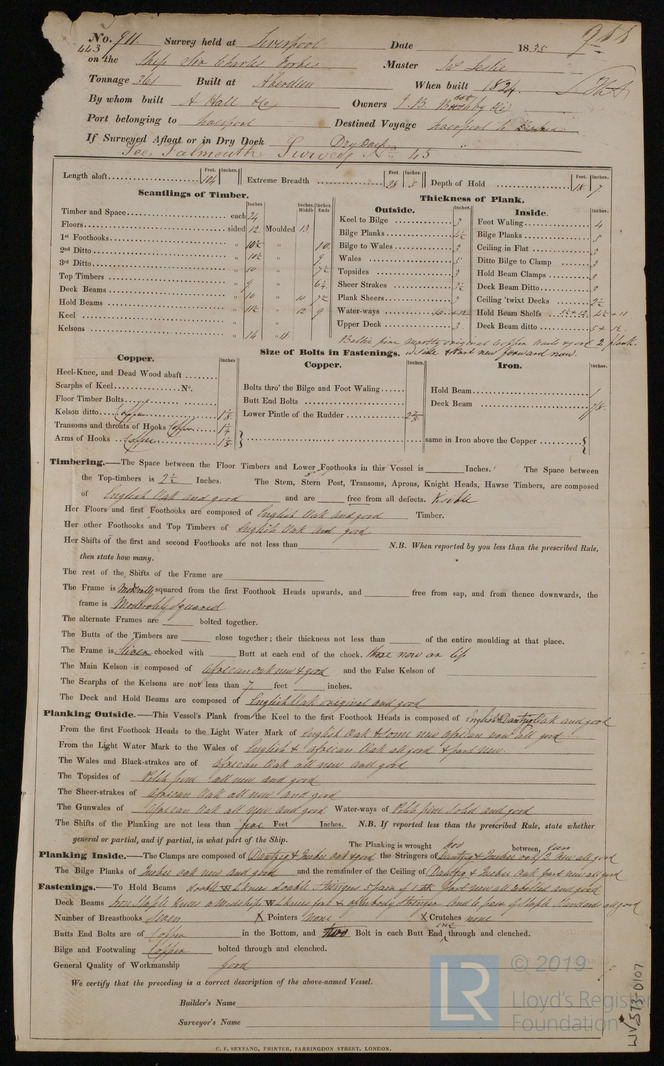 No. 911 Survey held at Liverpool Date 1835
443 on the Ship Sir Charles Forbes Master Leslie
Tonnage 361 Built at Aberdeen When built 1824
By whom built A Hall &Co Owners J B
Port belonging to Liverpool Destined Voyage Liverpool to
If Surveyed Afloat or in Dry Dock Dry Dock
See Falmouth Survey No 45
Length aloft Feet. 104 Inches. Extreme Breadth Feet. Inches. Depth of Hold Feet. 18 Inches. 7
Scantlings of Timber.
Inches. Inches. Middle Inches. Ends
Timber and Space each 24
Floors sided 12 Moulded 13
1st Foothooks „ „
2nd Ditto „ 10½ „ 10
3rd Ditto „ 10½ „ 9
Top Timbers „ 10 „ 7½
Deck Beams „ 9 6½
Hold Beams „ 10 „ 10 7½
Keel „ 11½ „ 12 9
Kelsons „ 14 „ 14
Thickness of Plank.
Outside. Inches.
Keel to Bilge 3
Bilge Planks 4½
Bilge to Wales 3
Wales 5
Topsides 3
Sheer Strakes 3½
Plank Sheers 3
Water-ways
Upper Deck 3
Inside. Inches.
Foot Waling 4
Bilge Planks 5
Ceiling in Flat 3
Ditto Bilge to Clamp 3
Hold Beam Clamps 3
Deck Beam Ditto 3
Ceiling 'twixt Decks 2½
Hold Beam Shelfs
Deck Beam ditto
Baltic pine mostly original
new forward now.
Size of Bolts in Fastenings.
Copper. Inches.
Heel-Knee, and Dead Wood abaft
Scarphs of Keel No.
Floor Timber Bolts
Kelson ditto Copper 1⅛
Transoms and throats of Hooks Copper 1¼
Arms of Hooks Copper 1⅛
Copper. Inches.
Bolts thro' the Bilge and Foot Waling
Butt End Bolts
Lower Pintle of the Rudder
Iron. Inches.
Hold Beam 1
Deck Beam ⅞
same in Iron above the Copper
Timbering.—The Space between the Floor Timbers and Lower Foothooks in this Vessel is Inches. The Space between
the Top-timbers is 2½ Inches. The Stem, Stern Post, Transoms, Aprons, Knight Heads, Hawse Timbers, are composed
of English Oak and good and are free from all defects.
Her Floors and first Foothooks are composed of English Oak and good Timber.
Her other Foothooks and Top Timbers of English Oak and good
Her Shifts of the first and second Foothooks are not less than N.B. When reported by you less than the prescribed Rule,
then state how many.
The rest of the Shifts of the Frame are
The Frame is Moderately squared from the first Foothook Heads upwards, and free from sap, and from thence downwards, the
frame is Moderately squared
The alternate Frames are bolted together.
The Butts of the Timbers are close together; their thickness not less than of the entire moulding at that place.
The Frame is chocked with Butt at each end of the chock.
The Main Kelson is composed of African oak new & good and the False Kelson of
The Scarphs of the Kelsons are not less than 7 feet inches.
The Deck and Hold Beams are composed of English Oak original and good
Planking Outside.—This Vessel's Plank from the Keel to the first Foothook Heads is composed of English & Dantzig Oak and good
From the first Foothook Heads to the Light Water Mark of English Oak & some new African now all good
From the Light Water Mark to the Wales of English & African Oak all good & part new
The Wales and Black-strakes are of African Oak all new and good
The Topsides of Pitch pine all new and good
The Sheer-strakes of African Oak all new and good
The Gunwales of African Oak all new and good Water-ways of Pitch pine sold and good
The Shifts of the Planking are not less than five Feet Inches. N.B. If reported less than the prescribed Rule, state whether
general or partial, and if partial, in what part of the Ship. The Planking is wrought two between,
Planking Inside.—The Clamps are composed of Dantzig & Quebec oak & good the Stringers of Dantzig & Quebec oak new all good
The Bilge Planks of Quebec oak new and good and the remainder of the Ceiling of Dantzig & Quebec oak part new all good
Fastenings.—To Hold Beams double
Deck Beams all good
Number of Breasthooks Seven Pointers none Crutches none
Butts End Bolts are of Copper in the Bottom, and two Bolt in each Butt End one through and clenched.
Bilge and Footwaling Copper bolted through and clenched.
General Quality of Workmanship good
We certify that the preceding is a correct description of the above-named Vessel.
Builder's Name
Surveyor's Name
C. F. SEYFANG, PRINTER, FARRINGDON STREET, LONDON.
LR © 2019
Lloyd's Register
Foundation
LIV 373-0107